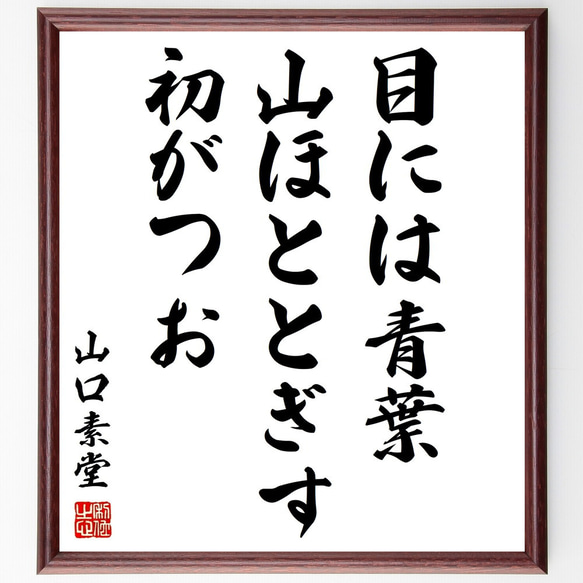 目には青葉
山ほととぎす
初がつお
山口素堂